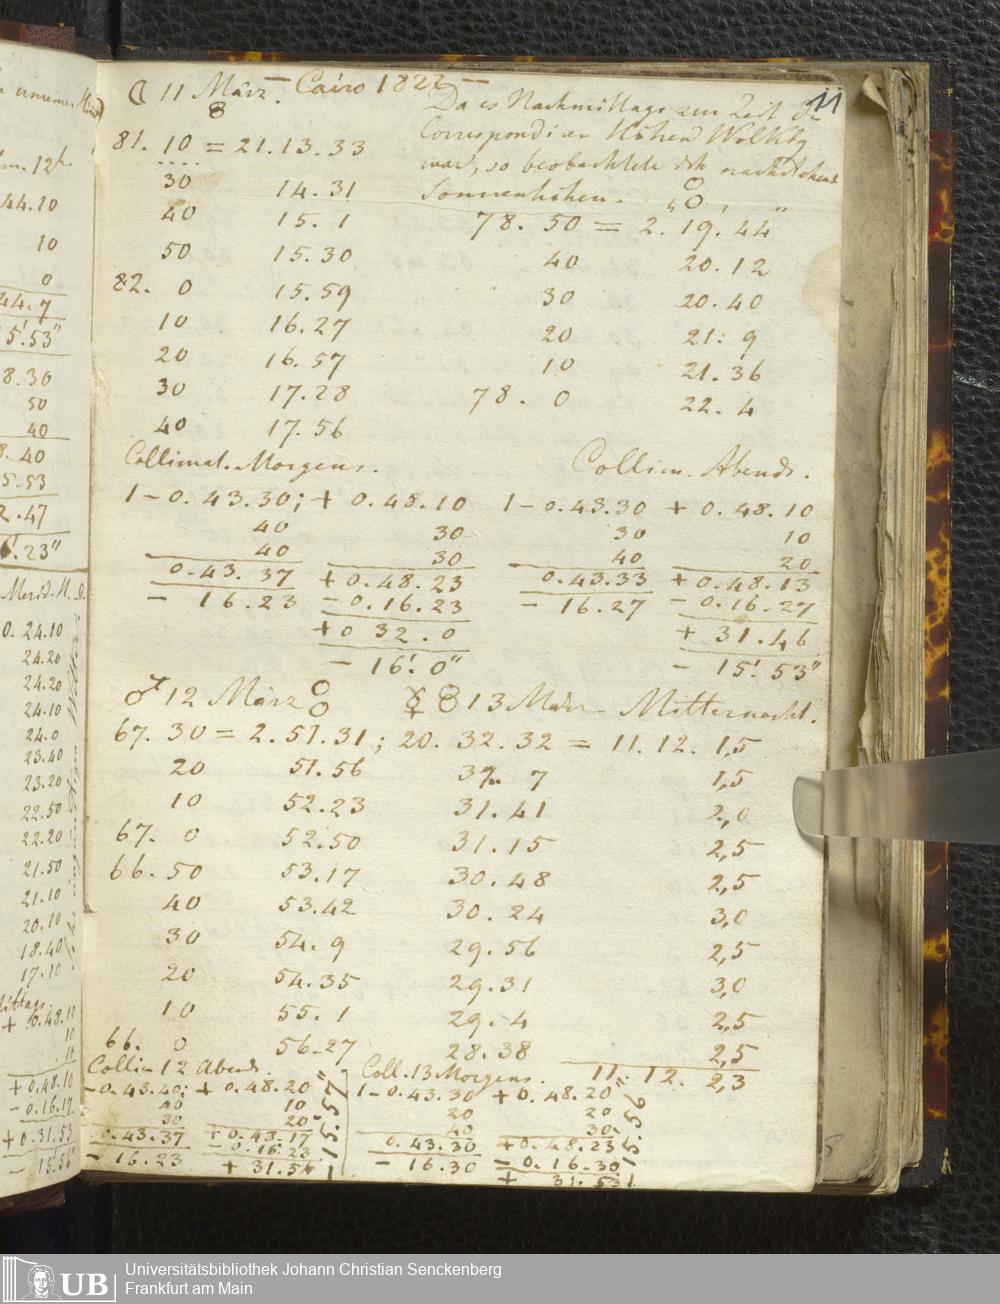 ☾ 11 März. – Cairo 1822 –
11
Da es Nachmittags zur Zeit der
Correspondiren Höhen Wolkig
war, so beobachtete ich nachstehende
Sonnenhöhen.
81. 10 = 21. 13. 33
30 14. 31
40 15. 1
50 15. 30
82. 0 15. 59
10 16. 27
20 16. 57
30 17. 28
40 17. 56
78. 50 = 2. 19. 44"
40 20. 12
30 20. 40
20 21: 9
10 21. 36
78. 0 22. 4
Collimat. Morgens.
1 – 0. 43. 30; + 0. 48. 10
40 30
40 30
0. 43. 37 + 0. 48. 23
– 16. 23 – 0. 16. 23
+ 0 32. 0
– 16'. 0"
Collim. Abends.
1 – 0. 43. 30 + 0. 48. 10
30 10
40 20
0. 43. 33 + 0. 48. 13
– 16. 27 – 0. 16. 27
+ 31. 46
– 15'. 53"
♂ 12 März
13 März – Mitternacht.
67. 30 = 2. 51. 31; 20. 32. 32 = 11. 12. 1,5
20 51. 56 7 1,5
10 52. 23 31. 41 2,0
67. 0 52. 50 31. 15 2,5
66. 50 53. 17 30. 48 2,5
40 53. 42 30. 24 3,0
30 54. 9 29. 56 2,5
20 54. 35 29. 31 3,0
10 55. 1 29. 4 2,5
66. 0 56. 27 28. 38 2,5
11. 12. 2,3
Collim 12 Abends.
– 0. 43. 40; + 0. 48. 20
40 10
30 20
43. 37 + 0. 48. 17
– 16. 23 – 0. 16. 23
+ 31. 54
– 15. 57"
Coll. 13 Morgens.
1 – 0. 43. 30 + 0. 48. 20
20 20
40 30
0. 43. 30 + 0. 48. 23
– 16. 30 – 0. 16. 30
+ 31. 53
15. 56"
12h.
44. 10
10
0
44. 7
5'. 53"
8. 30
50
40
8. 40
5. 53
2. 47
23"
Merid. H.
0. 24. 10
24. 20
24. 20
24. 10
24. 0
23. 40
23. 20
22. 50
22. 20
21. 50
21. 10
20. 10
18. 40
17. 10
Mittags.
+ 0. 48. 10
10
10
+ 0. 48. 10
– 0. 16. 17
+ 0. 31. 53
– 15'. 56"
UB
Universitätsbibliothek Johann Christian Senckenberg
Frankfurt am Main